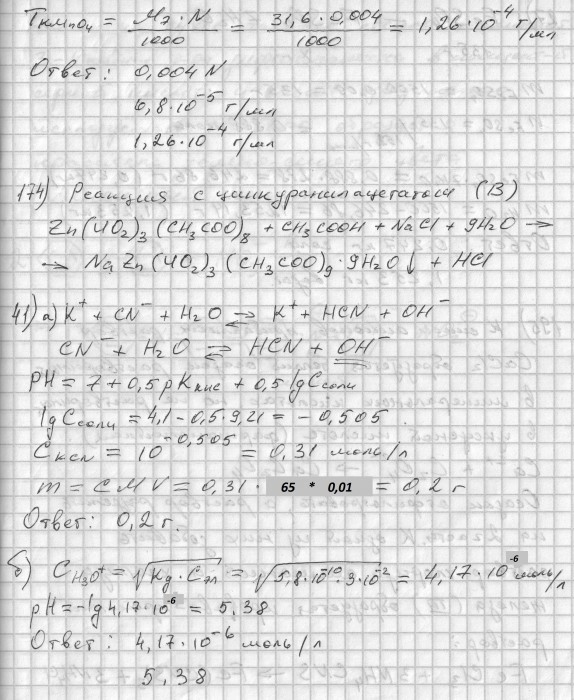 T KMnO4 = Mэ · N / 1000 = 31,6 · 0,004 / 1000 = 1,26 · 10^-4 г/мл
Ответ: 0,004 N
6,8 · 10^-5 г/мл
1,26 · 10^-4 г/мл
174) Реакция с цинкуранилацетатом (В)
Zn(UO2)3(CH3COO)8 + CH3COOH + NaCl + 9H2O →
→ NaZn(UO2)3(CH3COO)9 · 9H2O↓ + HCl
41) а) K+ + CN- + H2O ⇌ K+ + HCN + OH-
CN- + H2O ⇌ HCN + OH-
PH = 7 + 0,5 pK кис + 0,5 lg C соли
lg C соли = 4,1 - 0,5 · 9,21 = -0,505.
C KCN = 10^-0,505 = 0,31 моль/л
m = CMV = 0,31 · 65 * 0,01 = 0,2 г
Ответ: 0,2 г.
б) C H3O+ = √Kд · C эл = √5,8 · 10^-10 · 3 · 10^-2 = 4,17 · 10^-6 моль/л
pH = -lg 4,17 · 10^-6 = 5,38
Ответ: 4,17 · 10^-6 моль/л
5,38